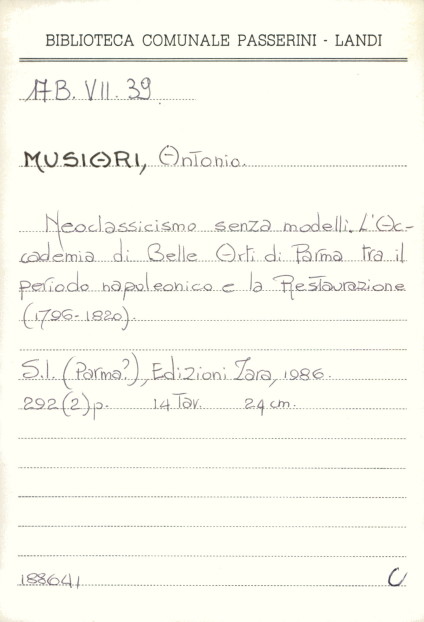 BIBLIOTECA COMUNALE PASSERINI - LANDI
17B. VII. 39
MUSIARI, Antonio.
Neoclassicismo senza modelli. L'Ac-
cademia di Belle Arti di Parma tra il
periodo napoleonico e la Restaurazione
(1796-1820).
S.l. (Parma?), Edizioni Zara, 1986.
292(2)p. 14 Tav. 24 cm.
188641
C